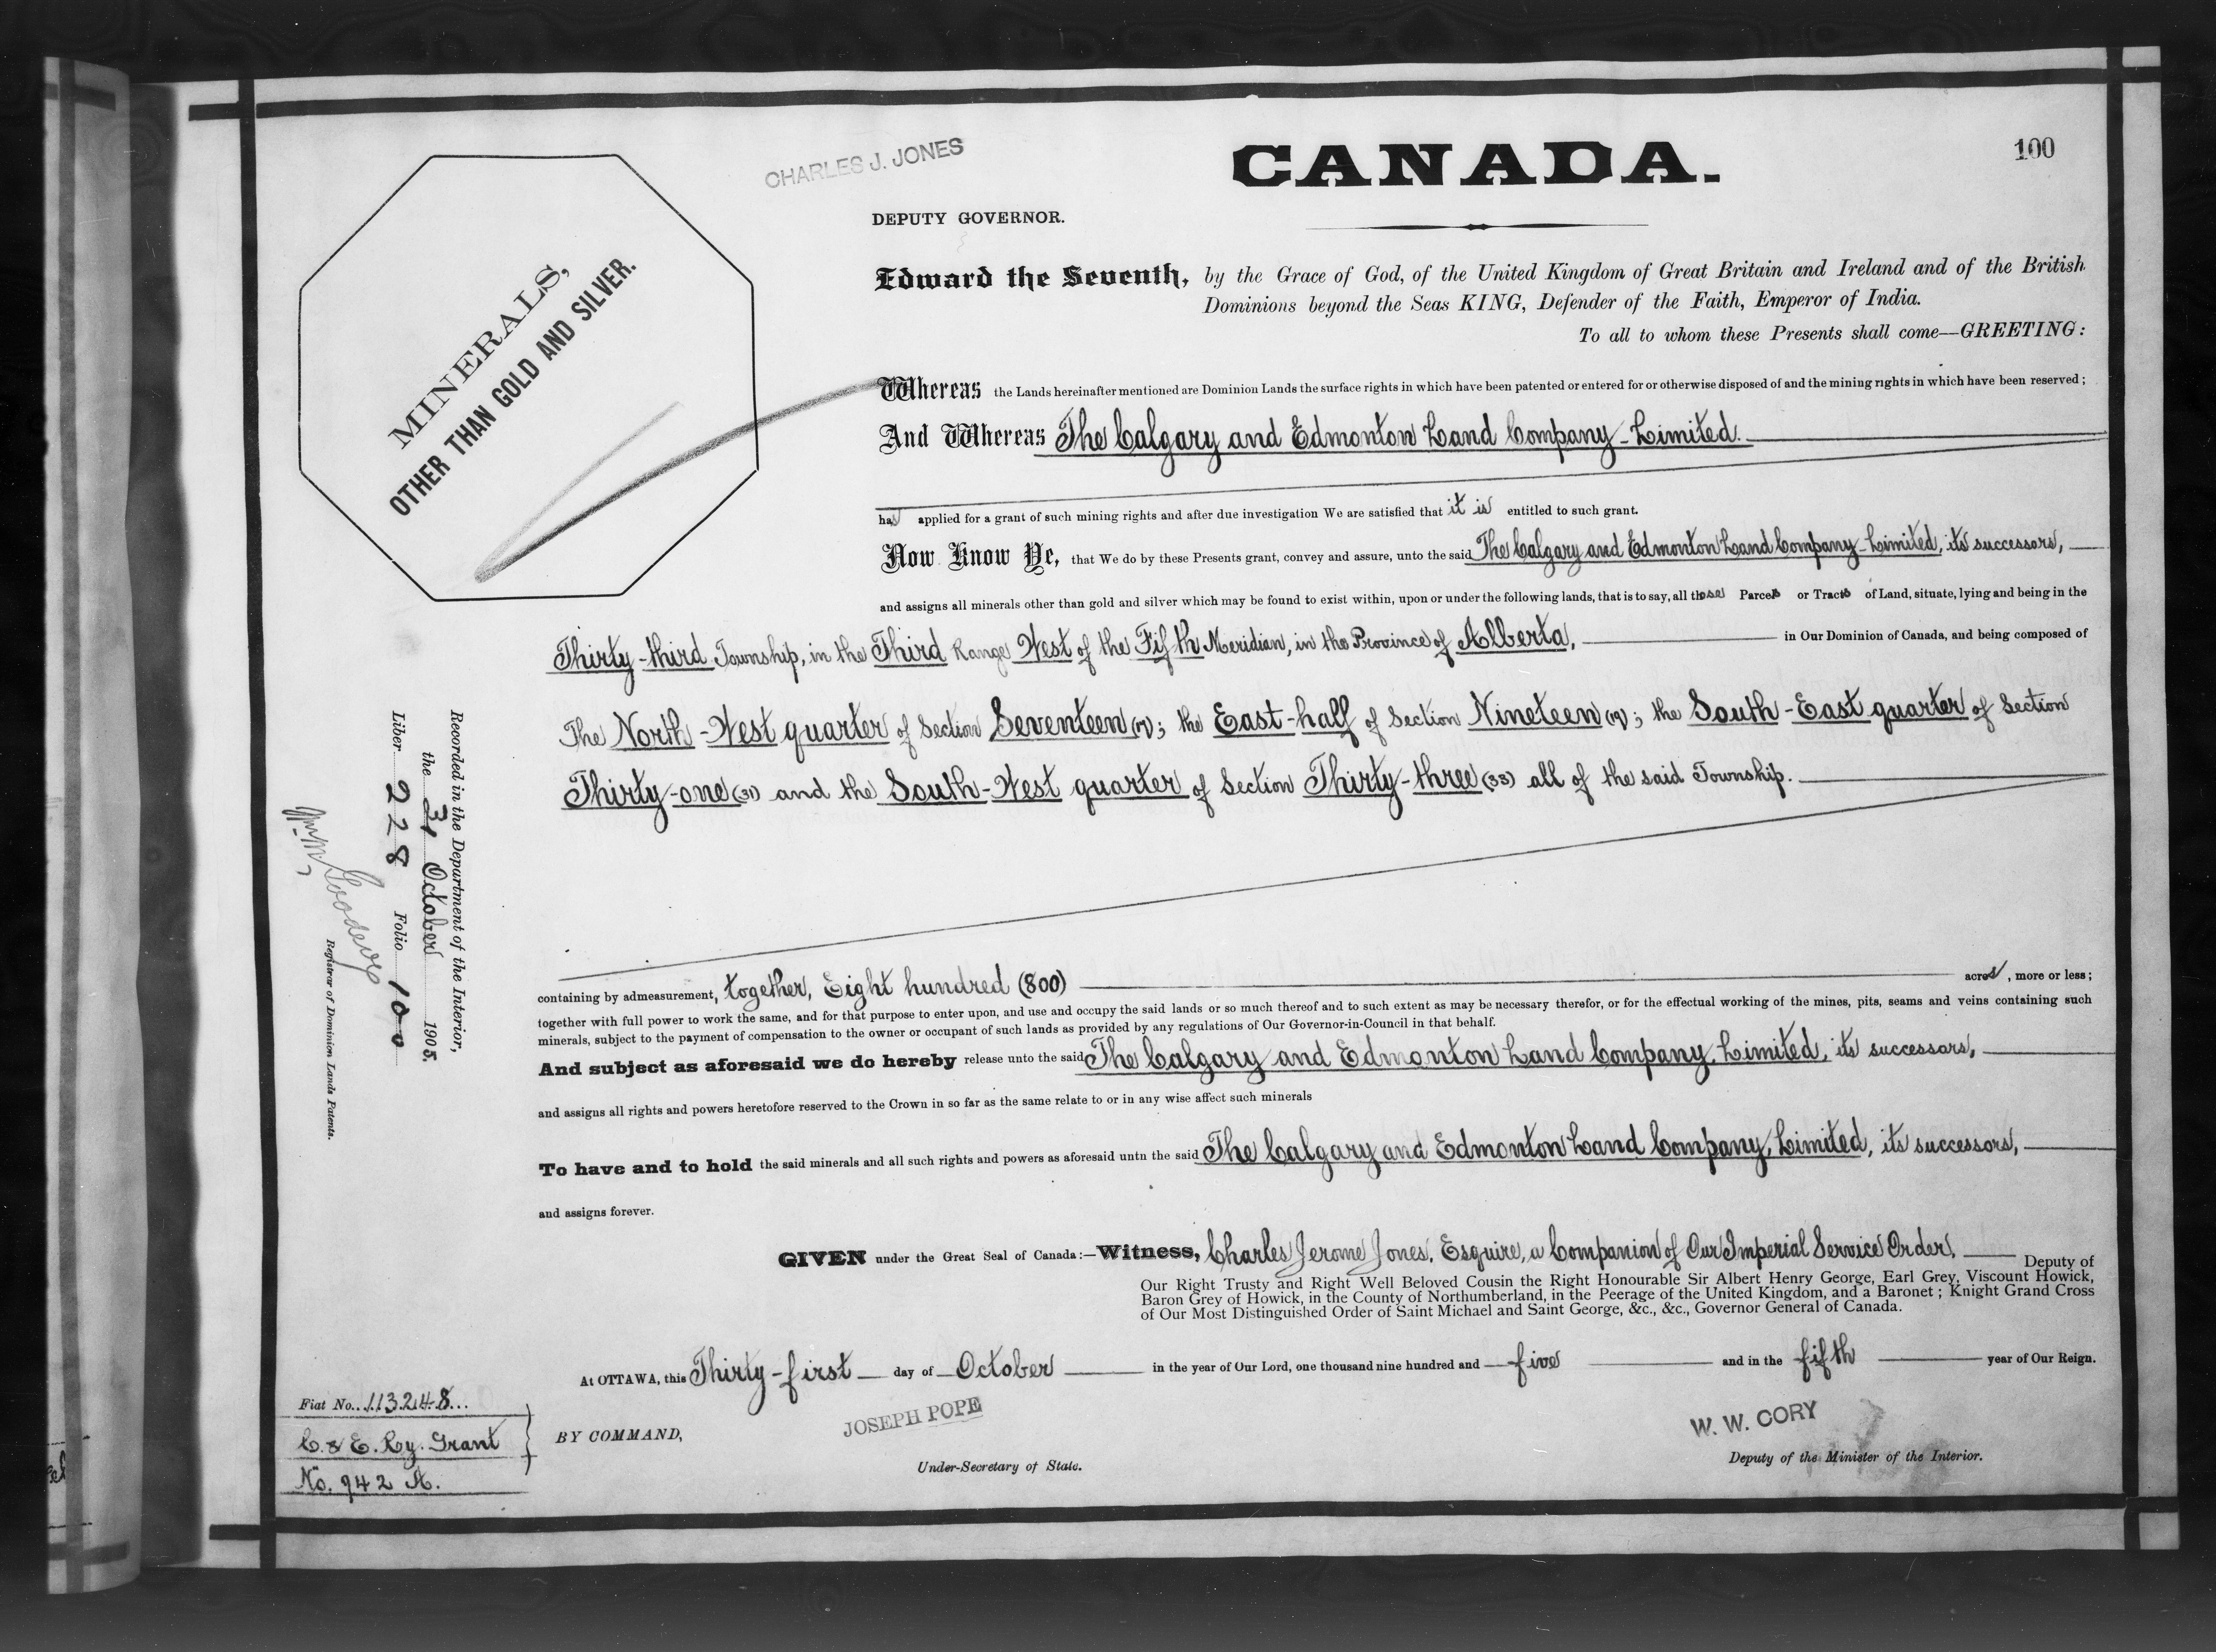 100
CHARLES J. JONES
CANADA.
DEPUTY GOVERNOR.
MINERALS,
OTHER THAN GOLD AND SILVER.
Edward the Seventh, by the Grace of God, of the United Kingdom of Great Britain and Ireland and of the British
Dominions beyond the Seas KING, Defender of the Faith, Emperor of India.
To all to whom these Presents shall come—GREETING:
Whereas the Lands hereinafter mentioned are Dominion Lands the surface rights in which have been patented or entered for or otherwise disposed of and the mining rights in which have been reserved;
And Whereas The Calgary and Edmonton Land Company Limited.
has applied for a grant of such mining rights and after due investigation We are satisfied that it is entitled to such grant.
Now Know Ye, that We do by these Presents grant, convey and assure, unto the said The Calgary and Edmonton Land Company Limited, its successors,
and assigns all minerals other than gold and silver which may be found to exist within, upon or under the following lands, that is to say, all those Parcels or Tracts of Land, situate, lying and being in the
Thirty-third Township, in the Third Range West of the Fifth Meridian, in the Province of Alberta, in Our Dominion of Canada, and being composed of
The North-West quarter of Section Seventeen (17); the East-half of Section Nineteen (19); the South-East quarter of Section
Thirty-one (31) and the South-West quarter of Section Thirty-three (33) all of the said Township.
containing by admeasurement, together, Eight hundred (800) acres, more or less;
together with full power to work the same, and for that purpose to enter upon, and use and occupy the said lands or so much thereof and to such extent as may be necessary therefor, or for the effectual working of the mines, pits, seams and veins containing such
minerals, subject to the payment of compensation to the owner or occupant of such lands as provided by any regulations of Our Governor-in-Council in that behalf.
And subject as aforesaid we do hereby release unto the said The Calgary and Edmonton Land Company, Limited, its successors,
and assigns all rights and powers heretofore reserved to the Crown in so far as the same relate to or in any wise affect such minerals
To have and to hold the said minerals and all such rights and powers as aforesaid untn the said The Calgary and Edmonton Land Company, Limited, its successors,
and assigns forever.
GIVEN under the Great Seal of Canada:—Witness, Charles Jerome Jones, Esquire, a Companion of Our Imperial Service Order, Deputy of
Our Right Trusty and Right Well Beloved Cousin the Right Honourable Sir Albert Henry George, Earl Grey, Viscount Howick,
Baron Grey of Howick, in the County of Northumberland, in the Peerage of the United Kingdom, and a Baronet; Knight Grand Cross
of Our Most Distinguished Order of Saint Michael and Saint George, &c., &c., Governor General of Canada.
At OTTAWA, this Thirty-first day of October in the year of Our Lord, one thousand nine hundred and five and in the fifth year of Our Reign.
BY COMMAND,
JOSEPH POPE
Under-Secretary of State.
W. W. CORY
Deputy of the Minister of the Interior.
Recorded in the Department of the Interior,
the 31 October 1905.
Liber 228 Folio 100
Registrar of Dominion Lands Patents.
Fiat No. 113248
C. & E. Ry. Grant
No. 942 A.